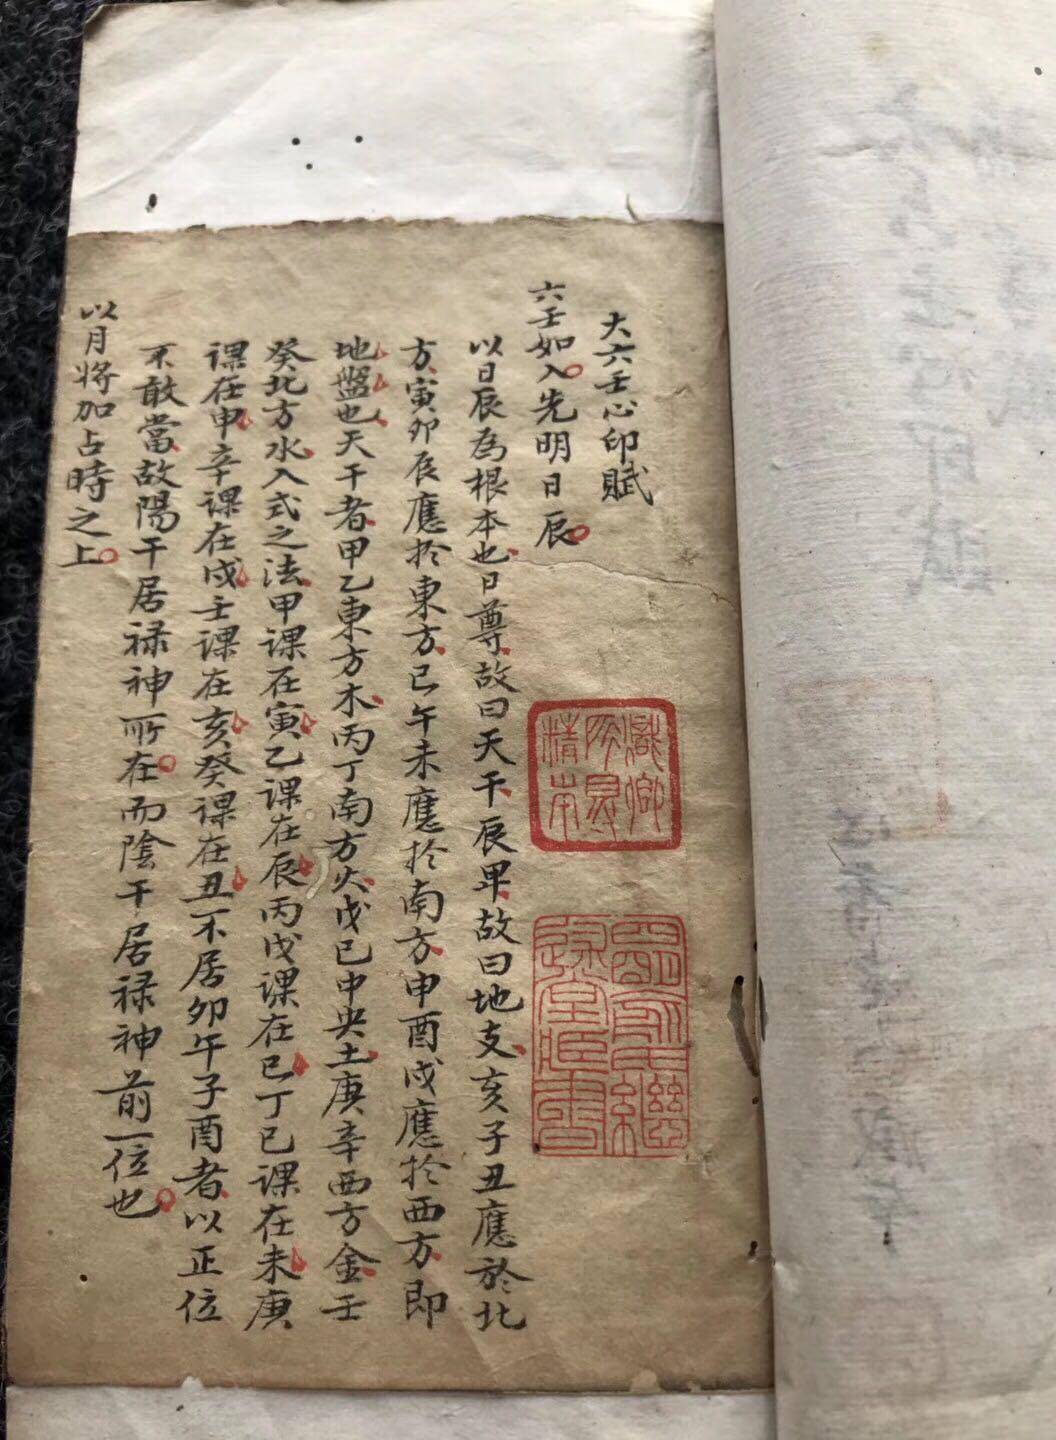 大六壬心印賦
六壬如入先明日辰
以日辰為根本也日尊故曰天干辰卑故曰地支亥子丑應於北
方寅卯辰應於東方巳午未應於南方申酉戌應於西方即
地盤也天干者甲乙東方木丙丁南方火戊己中央土庚辛西方金壬
癸北方水入式之法甲課在寅乙課在辰丙戊課在巳丁己課在未庚
課在申辛課在戌壬課在亥癸課在丑不居卯午子酉者以正位
不敢當故陽干居祿神所在而陰干居祿神前一位也
以月將加占時之上